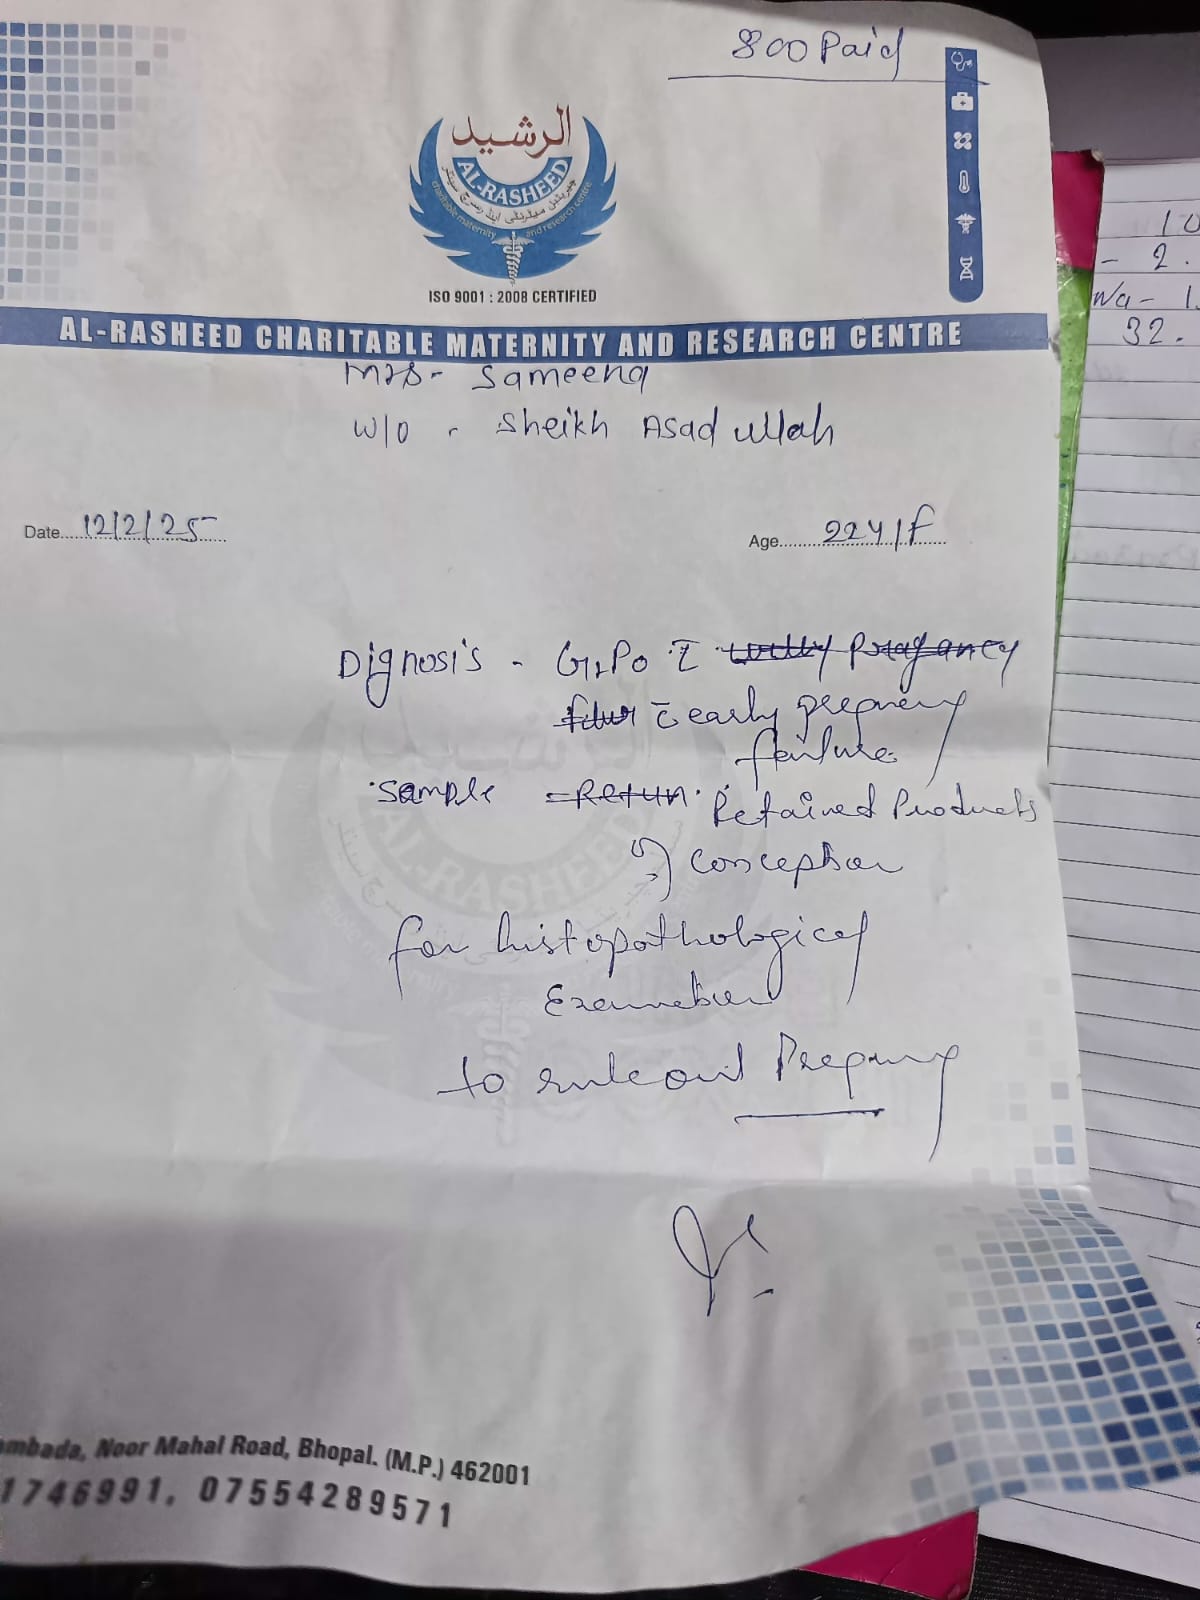 800 Paid
الرشيد
AL-RASHEED
charitable maternity and research centre
ISO 9001 : 2008 CERTIFIED
AL-RASHEED CHARITABLE MATERNITY AND RESEARCH CENTRE
Mrs- Sameena
W/O - Sheikh Asad ullah
Date 12/2/25
Age 22Y/F
Dignosis - G1P0 c̄
c̄ early pregnancy
failure
Sample Retained Products
of conception
for histopathological
Examination
to rule out Pregnancy
ambada, Noor Mahal Road, Bhopal. (M.P.) 462001
1746991, 07554289571
10
- 2.
Na- 1.
32.